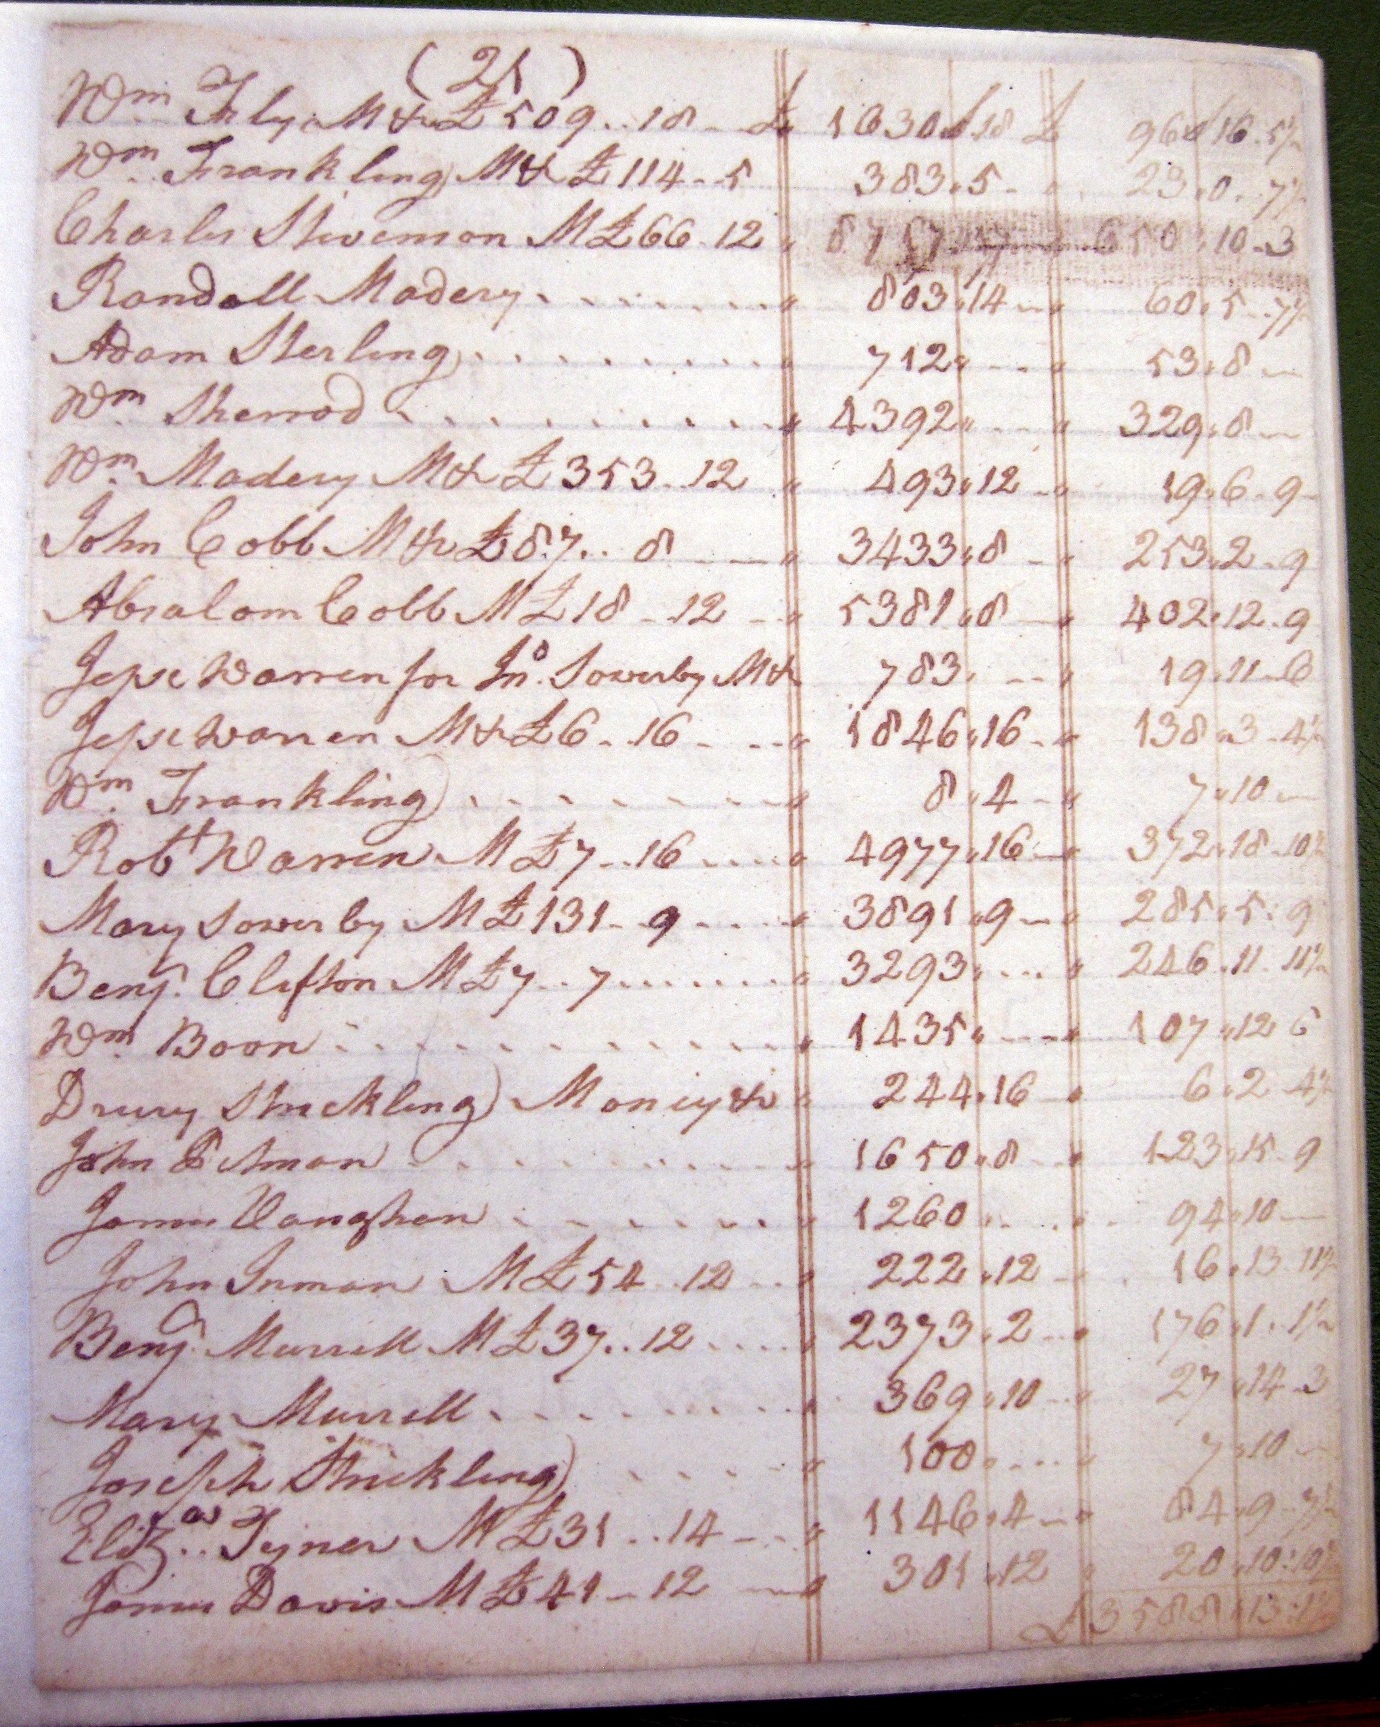 (21)
Wm Fily M & £509..18 - £ 1630 " 18 £ 96 " 16 . 5½
Wm. Frankling M & £114 - 5 383 " 5 - 23 " 0 . 7½
Charles Stevenson M £66 . 12 " 650 " 10 - 3
Randall Madery . . . . . . . " 803 " 14 - " 60 " 5 . . 7½
Adam Sterling . . . . . . . . " 712 " - - - " 53 " 8 -
Wm. Sherrod . . . . . . . . . " 4392 " . . . " 329 " 8 -
Wm. Madery M & £353 . . 12 " 493 " 12 - " 19 " 6 - 9
John Cobb M & £87 . . 8 - - " 3433 " 8 - " 253 " 2 - 9
Absalom Cobb M £18 - 12 - " 5381 " 8 - " 402 " 12 . 9
Jesse Warren for Jno. Sowerby M & 783 " - - " 19 " 11 - 6
Jesse Warren M & £6 - 16 - . . " 1846 " 16 - " 138 " 3 - 4½
Wm. Frankling . . . . . . . " 8 " 4 - " 7 " 10 -
Robt Warren M £7 - . 16 . . . . " 4977 " 16 - " 372 " 18 - 10½
Mary Sowerby M £131 - 9 . . . . " 3891 " 9 - " 285 " 5 : 9
Benj. Clifton M £7 . . 7 . . . . . . . " 3293 " . . . " 246 . 11 . 11½
Wm. Boon . . . . . . . . . . " 1435 " - - - " 107 " 12 6
Drury Strickling Money & " 244 " 16 - " 6 " 2 4½
John Pitman . . . . . . . . " 1650 " 8 - " 123 " 15 - 9
James Vaughan . . . . . . . " 1260 " . . . " 94 " 10 -
John Inman M £54 . . 12 - . . " 222 " 12 - . 16 " 13 11½
Benj. Murrell M £37 . . 12 . . . . " 2373 " 2 - " 176 " 1 . 1½
Mary Murrell . . . . . . . . " 369 " 10 - " 27 " 14 - 3
Joseph Strickling . . . . . " 100 " . . . " 7 " 10 -
Elizath. Tyner M £31 . . 14 - - " 1146 " 4 - " 84 " 9 - 7½
James Davis M £41 - 12 - " 301 " 12 " 20 " 10 : 10½
£3588 " 13 : 1½